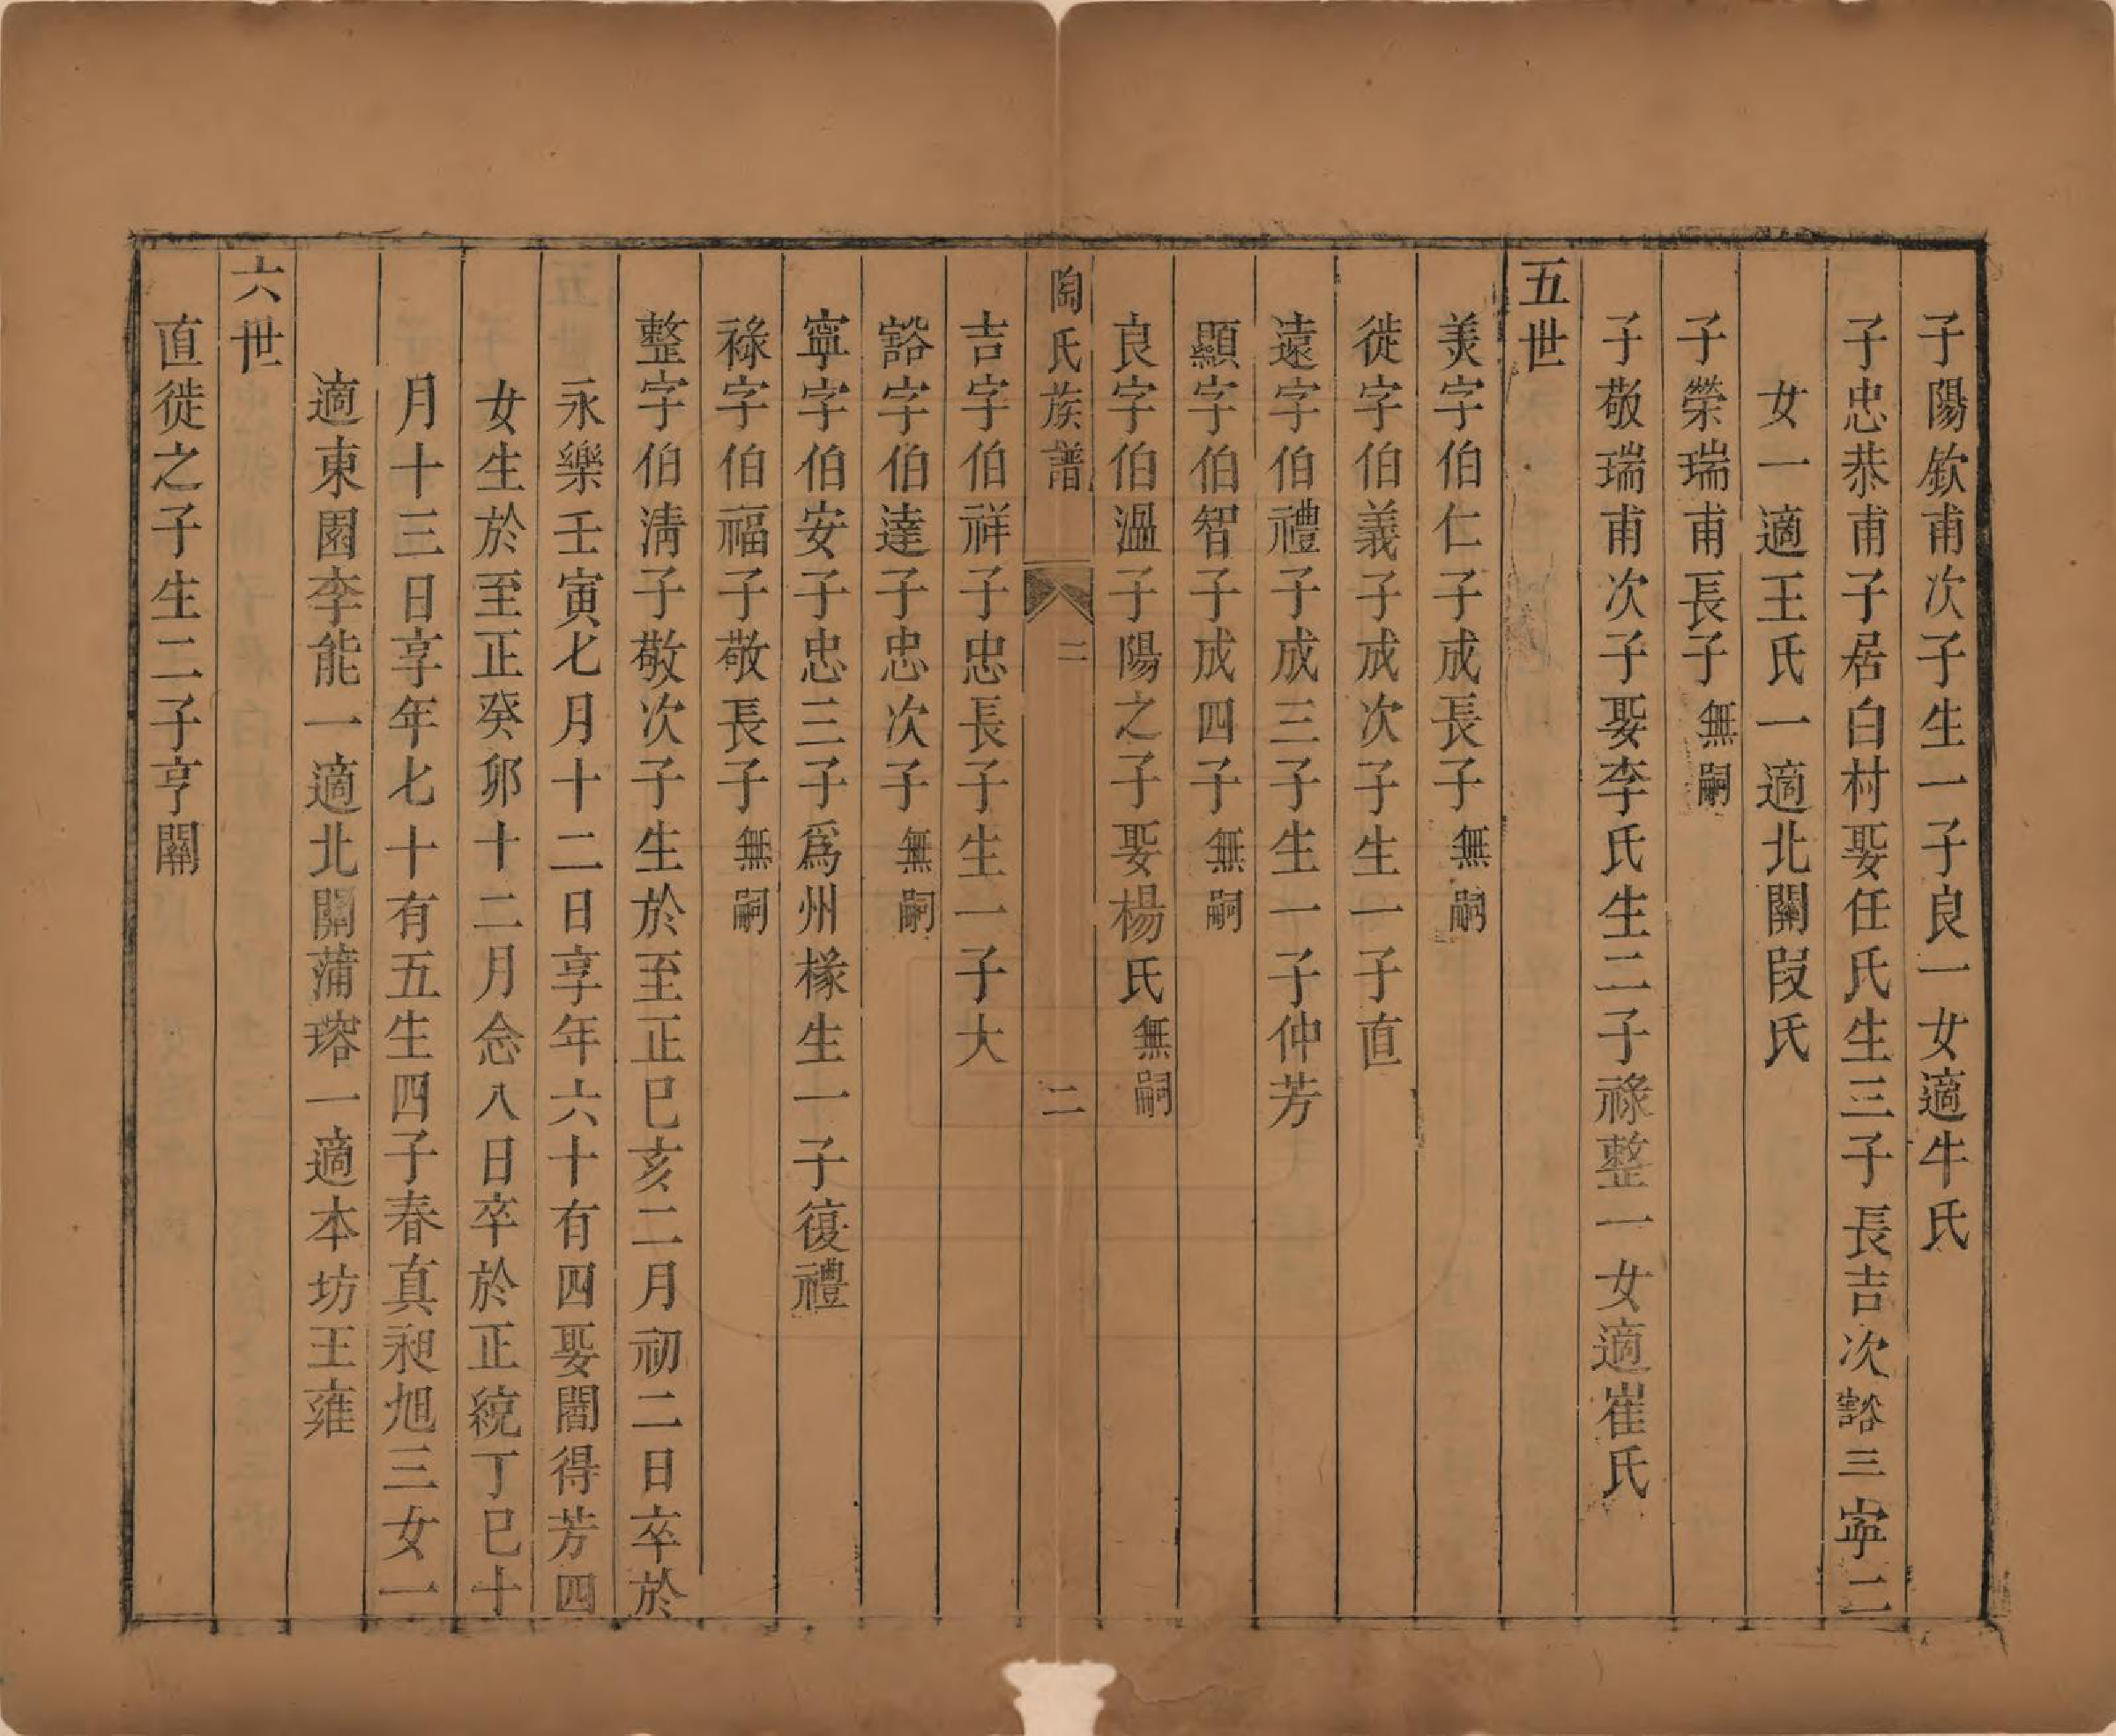 子陽欽甫次子生一子良一女適牛氏
子忠恭甫子居白村娶任氏生三子長吉次豁三寧二
女一適王氏一適北關段氏
子榮瑞甫長子無嗣
子敬瑞甫次子娶李氏生二子祿整一女適崔氏
五世
美字伯仁子成長子無嗣
徙字伯義子成次子生一子直
遠字伯禮子成三子生一子仲芳
顯字伯智子成四子無嗣
良字伯溫子陽之子娶楊氏無嗣
陶氏族譜 二 二
吉字伯祥子忠長子生一子大
豁字伯達子忠次子無嗣
寧字伯安子忠三子為州椽生一子復禮
祿字伯福子敬長子無嗣
整字伯清子敬次子生於至正巳亥二月初二日卒於
永樂壬寅七月十二日享年六十有四娶閻得芳四
女生於至正癸卯十二月念八日卒於正統丁巳十
月十三日享年七十有五生四子春真昶旭三女一
適東園李能一適北關蒲瑢一適本坊王雍
六世
直徙之子生二子亨關